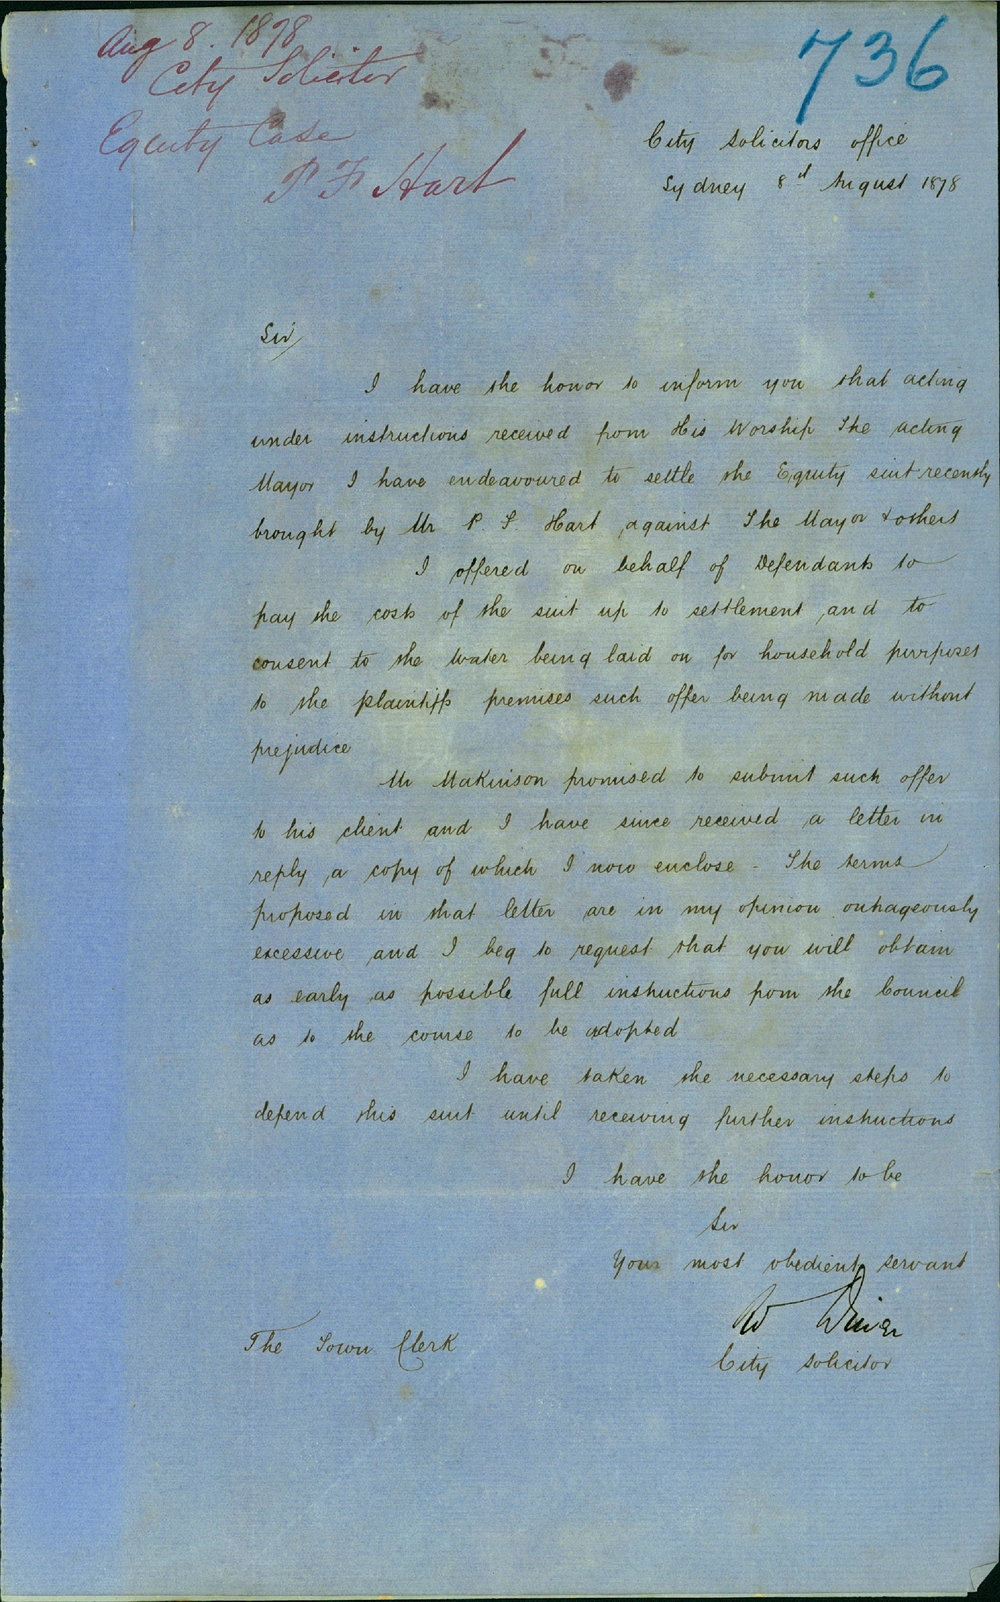 Aug 8. 1878
City Solicitor
Equity Case
P F Hart
736
City Solicitors office
Sydney 8th August 1878
Sir
I have the honor to inform you that acting
under instructions received from His Worship The acting
Mayor I have endeavoured to settle the Equity suit recently
brought by Mr P. F. Hart against The Mayor & others
I offered on behalf of Defendants to
pay the costs of the suit up to settlement and to
consent to the water being laid on for household purposes
to the plaintiffs premises such offer being made without
prejudice
Mr Makinson promised to submit such offer
to his client and I have since received a letter in
reply a copy of which I now enclose - The terms
proposed in that letter are in my opinion outrageously
excessive and I beg to request that you will obtain
as early as possible full instructions from the Council
as to the course to be adopted
I have taken the necessary steps to
defend this suit until receiving further instructions
I have the honor to be
Sir
Your most obedient servant
W Driver
City Solicitor
The Town Clerk